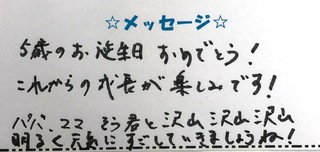 ☆メッセージ☆
5歳のお誕生日 おめでとう！
これからの成長が楽しみです！
パパ、ママ そう君と 沢山 沢山 沢山
明るく元気にすごしていきましょうね！